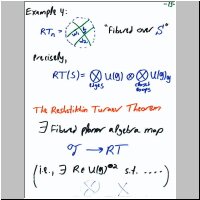 Example 4:
RTₙ = "Fibred over S"
Precisely,
RT(S) = ⊗ U(g) ⊗ U(g)g
edges closed loops
The Reshetikhin Turaev Theorem
∃ Fibred planar algebra map
→ RT
(i.e., ∃ R ∈ U(g)^⊗2 s.t. .....)